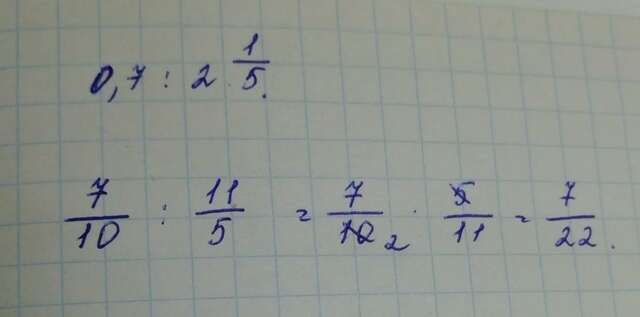 0,7 : 2 1/5.
7/10 : 11/5 = 7/10 2 · 5/11 = 7/22.